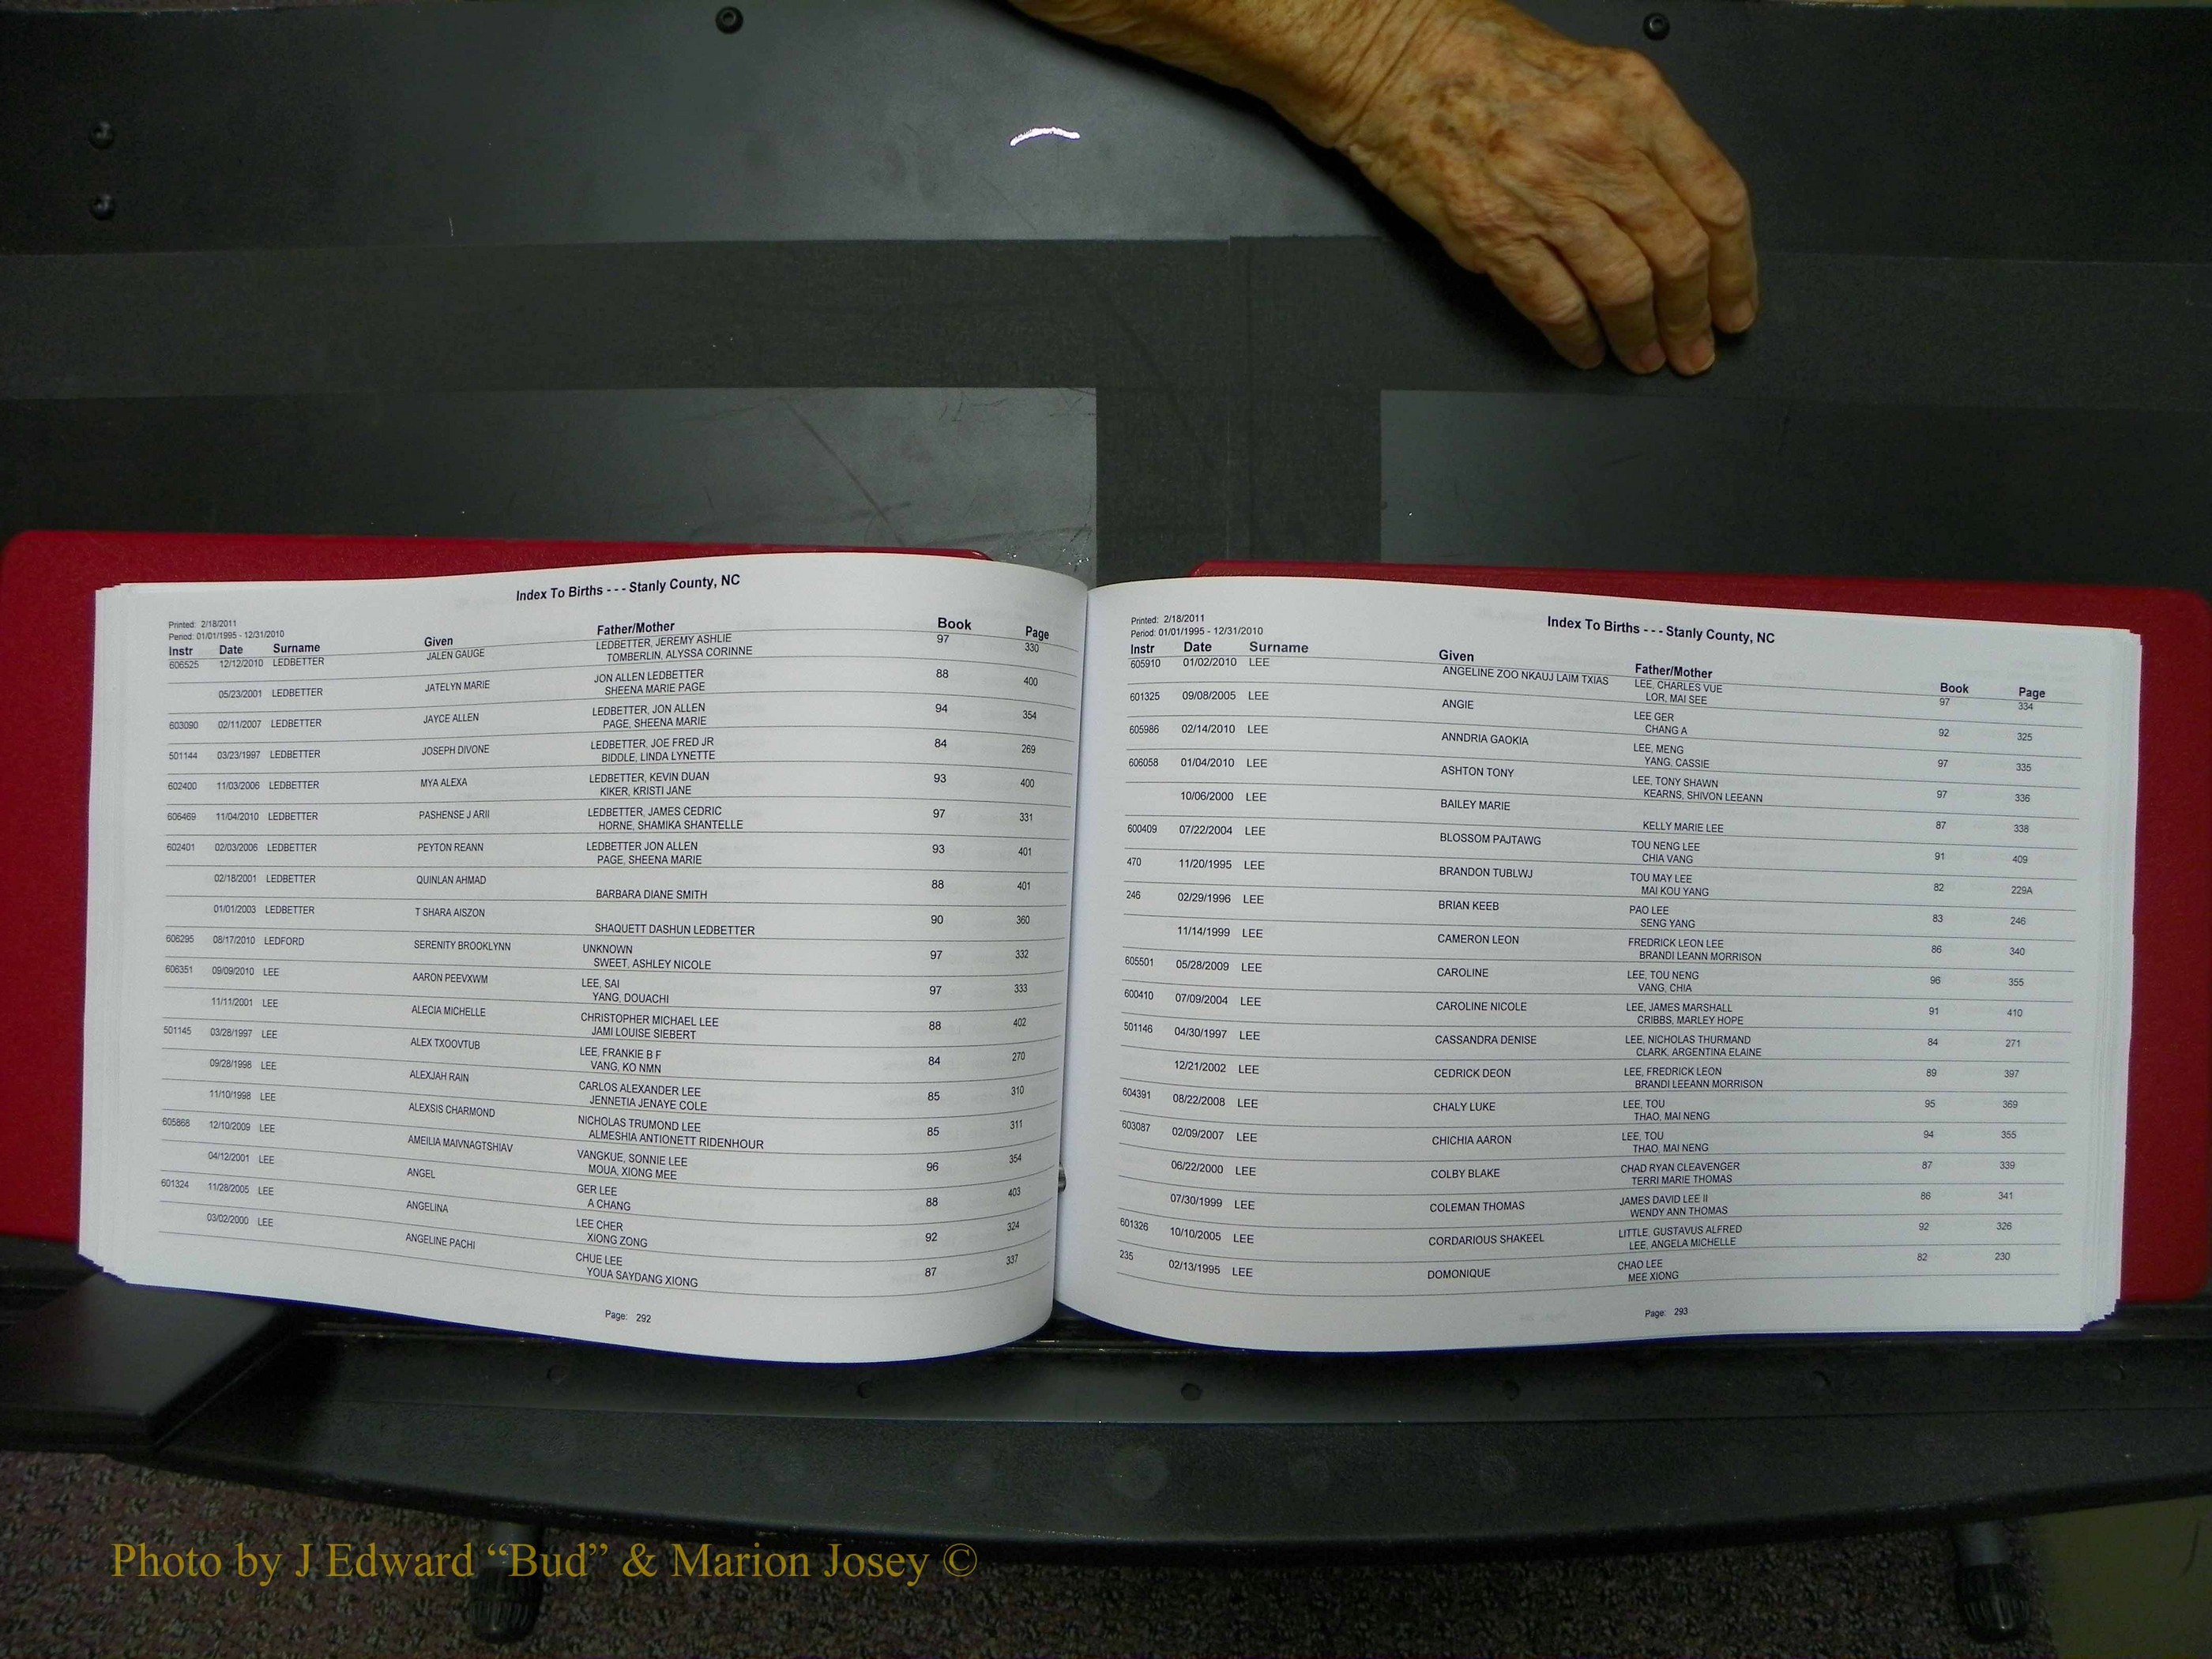 Index To Births - - - Stanly County, NC
Printed: 2/18/2011
Period: 01/01/1995 - 12/31/2010
Instr Date Surname Given Father/Mother Book Page
606525 12/12/2010 LEDBETTER JALEN GAUGE LEDBETTER, JEREMY ASHLIE 97 330
TOMBERLIN, ALYSSA CORINNE
05/23/2001 LEDBETTER JATELYN MARIE JON ALLEN LEDBETTER 88 400
SHEENA MARIE PAGE
603090 02/11/2007 LEDBETTER JAYCE ALLEN LEDBETTER, JON ALLEN 94 354
PAGE, SHEENA MARIE
501144 03/23/1997 LEDBETTER JOSEPH DIVONE LEDBETTER, JOE FRED JR 84 269
BIDDLE, LINDA LYNETTE
602400 11/03/2006 LEDBETTER MYA ALEXA LEDBETTER, KEVIN DUAN 93 400
KIKER, KRISTI JANE
606469 11/04/2010 LEDBETTER PASHENSE J ARII LEDBETTER, JAMES CEDRIC 97 331
HORNE, SHAMIKA SHANTELLE
602401 02/03/2006 LEDBETTER PEYTON REANN LEDBETTER JON ALLEN 93 401
PAGE, SHEENA MARIE
02/18/2001 LEDBETTER QUINLAN AHMAD 88 401
BARBARA DIANE SMITH
01/01/2003 LEDBETTER T SHARA AISZON 90 360
SHAQUETT DASHUN LEDBETTER
606295 08/17/2010 LEDFORD SERENITY BROOKLYNN UNKNOWN 97 332
SWEET, ASHLEY NICOLE
606351 09/09/2010 LEE AARON PEEVXWM LEE, SAI 97 333
YANG, DOUACHI
11/11/2001 LEE ALECIA MICHELLE CHRISTOPHER MICHAEL LEE 88 402
JAMI LOUISE SIEBERT
501145 03/28/1997 LEE ALEX TXOOVTUB LEE, FRANKIE B F 84 270
VANG, KO NMN
09/28/1998 LEE ALEXJAH RAIN CARLOS ALEXANDER LEE 85 310
JENNETIA JENAYE COLE
11/10/1998 LEE ALEXSIS CHARMOND NICHOLAS TRUMOND LEE 85 311
ALMESHIA ANTIONETT RIDENHOUR
605868 12/10/2009 LEE AMEILIA MAIVNAGTSHIAV VANGKUE, SONNIE LEE 96 354
MOUA, XIONG MEE
04/12/2001 LEE ANGEL GER LEE 88 403
A CHANG
601324 11/28/2005 LEE ANGELINA LEE CHER 92 324
XIONG ZONG
03/02/2000 LEE ANGELINE PACHI CHUE LEE 87 337
YOUA SAYDANG XIONG
Page: 292
Index To Births - - - Stanly County, NC
Printed: 2/18/2011
Period: 01/01/1995 - 12/31/2010
Instr Date Surname Given Father/Mother Book Page
605910 01/02/2010 LEE ANGELINE ZOO NKAUJ LAIM TXIAS LEE, CHARLES VUE 97 334
LOR, MAI SEE
601325 09/08/2005 LEE ANGIE LEE GER 92 325
CHANG A
605986 02/14/2010 LEE ANNDRIA GAOKIA LEE, MENG 97 335
YANG, CASSIE
606058 01/04/2010 LEE ASHTON TONY LEE, TONY SHAWN 97 336
KEARNS, SHIVON LEEANN
10/06/2000 LEE BAILEY MARIE 87 338
KELLY MARIE LEE
600409 07/22/2004 LEE BLOSSOM PAJTAWG TOU NENG LEE 91 409
CHIA VANG
470 11/20/1995 LEE BRANDON TUBLWJ TOU MAY LEE 82 229A
MAI KOU YANG
246 02/29/1996 LEE BRIAN KEEB PAO LEE 83 246
SENG YANG
11/14/1999 LEE CAMERON LEON FREDRICK LEON LEE 86 340
BRANDI LEANN MORRISON
605501 05/28/2009 LEE CAROLINE LEE, TOU NENG 96 355
VANG, CHIA
600410 07/09/2004 LEE CAROLINE NICOLE LEE, JAMES MARSHALL 91 410
CRIBBS, MARLEY HOPE
501146 04/30/1997 LEE CASSANDRA DENISE LEE, NICHOLAS THURMAND 84 271
CLARK, ARGENTINA ELAINE
12/21/2002 LEE CEDRICK DEON LEE, FREDRICK LEON 89 397
BRANDI LEEANN MORRISON
604391 08/22/2008 LEE CHALY LUKE LEE, TOU 95 369
THAO, MAI NENG
603087 02/09/2007 LEE CHICHIA AARON LEE, TOU 94 355
THAO, MAI NENG
06/22/2000 LEE COLBY BLAKE CHAD RYAN CLEAVENGER 87 339
TERRI MARIE THOMAS
07/30/1999 LEE COLEMAN THOMAS JAMES DAVID LEE II 86 341
WENDY ANN THOMAS
601326 10/10/2005 LEE CORDARIOUS SHAKEEL LITTLE, GUSTAVUS ALFRED 92 326
LEE, ANGELA MICHELLE
235 02/13/1995 LEE DOMONIQUE CHAO LEE 82 230
MEE XIONG
Page: 293
Photo by J Edward “Bud” & Marion Josey ©